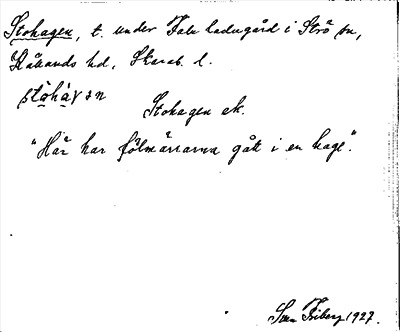 Stohagen, t. under Fale ladugård i Strö sn,
Kållands hd, Skarab. l.
stòhàγan
Stohagen ek.
"Här har fölmärrarna gått i en hage".
Sven Friberg 1927.